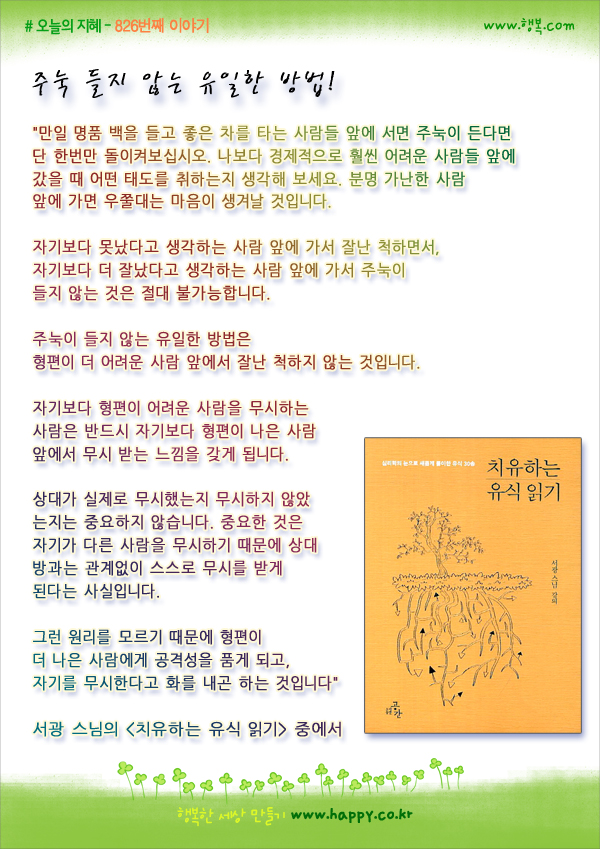 # 오늘의 지혜 - 826번째 이야기
www.행복.com
주눅 들지 않는 유일한 방법!
"만일 명품 백을 들고 좋은 차를 타는 사람들 앞에 서면 주눅이 든다면
단 한번만 돌이켜보십시오. 나보다 경제적으로 훨씬 어려운 사람들 앞에
갔을 때 어떤 태도를 취하는지 생각해 보세요. 분명 가난한 사람
앞에 가면 우쭐대는 마음이 생겨날 것입니다.
자기보다 못났다고 생각하는 사람 앞에 가서 잘난 척하면서,
자기보다 더 잘났다고 생각하는 사람 앞에 가서 주눅이
들지 않는 것은 절대 불가능합니다.
주눅이 들지 않는 유일한 방법은
형편이 더 어려운 사람 앞에서 잘난 척하지 않는 것입니다.
자기보다 형편이 어려운 사람을 무시하는
사람은 반드시 자기보다 형편이 나은 사람
앞에서 무시 받는 느낌을 갖게 됩니다.
상대가 실제로 무시했는지 무시하지 않았
는지는 중요하지 않습니다. 중요한 것은
자기가 다른 사람을 무시하기 때문에 상대
방과는 관계없이 스스로 무시를 받게
된다는 사실입니다.
그런 원리를 모르기 때문에 형편이
더 나은 사람에게 공격성을 품게 되고,
자기를 무시한다고 화를 내곤 하는 것입니다"
서광 스님의 <치유하는 유식 읽기> 중에서
심리학의 눈으로 새롭게 풀이한 유식 30송
치유하는
유식 읽기
서광 스님 강의
공간
행복한 세상 만들기 www.happy.co.kr